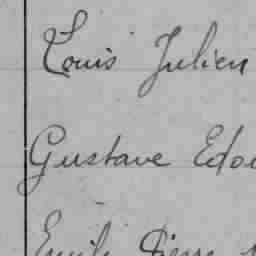 Louis Julien
Gustave Edou
Emile Pierre